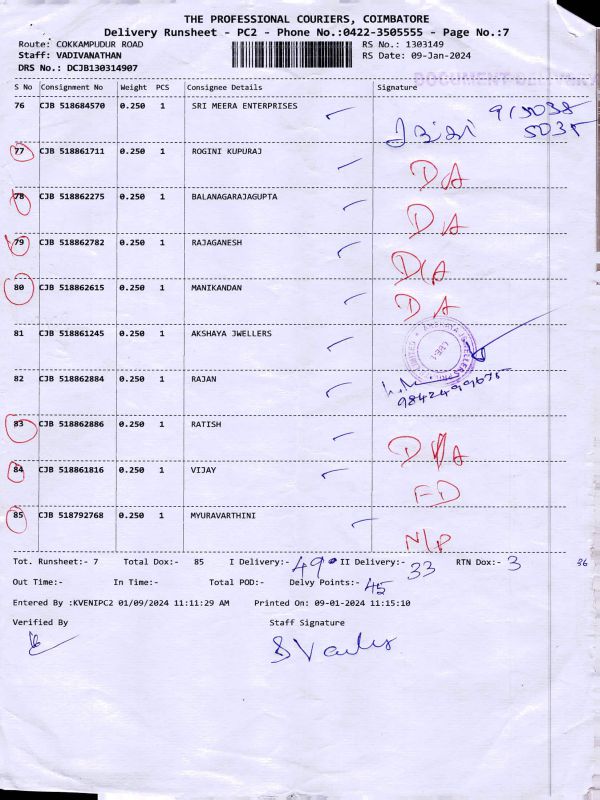 THE PROFESSIONAL COURIERS, COIMBATORE
Delivery Runsheet - PC2 - Phone No.:0422-3505555 - Page No.:7
Route: COKKAMPUDUR ROAD RS No.: 1303149
Staff: VADIVANATHAN RS Date: 09-Jan-2024
DRS No.: DCJB130314907
S No Consignment No Weight PCS Consignee Details Signature
76 CJB 518684570 0.250 1 SRI MEERA ENTERPRISES
77 CJB 518861711 0.250 1 ROGINI KUPURAJ D/A
78 CJB 518862275 0.250 1 BALANAGARAJAGUPTA D/A
79 CJB 518862782 0.250 1 RAJAGANESH D/A
80 CJB 518862615 0.250 1 MANIKANDAN D/A
81 CJB 518861245 0.250 1 AKSHAYA JWELLERS
82 CJB 518862884 0.250 1 RAJAN
83 CJB 518862886 0.250 1 RATISH D/A
84 CJB 518861816 0.250 1 VIJAY FD
85 CJB 518792768 0.250 1 MYURAVARTHINI N/P
Tot. Runsheet:- 7 Total Dox:- 85 I Delivery:- 49 II Delivery:- 33 RTN Dox:- 3 36
Out Time:- In Time:- Total POD:- Delvy Points:- 45
Entered By :KVENIPC2 01/09/2024 11:11:29 AM Printed On: 09-01-2024 11:15:10
Verified By Staff Signature